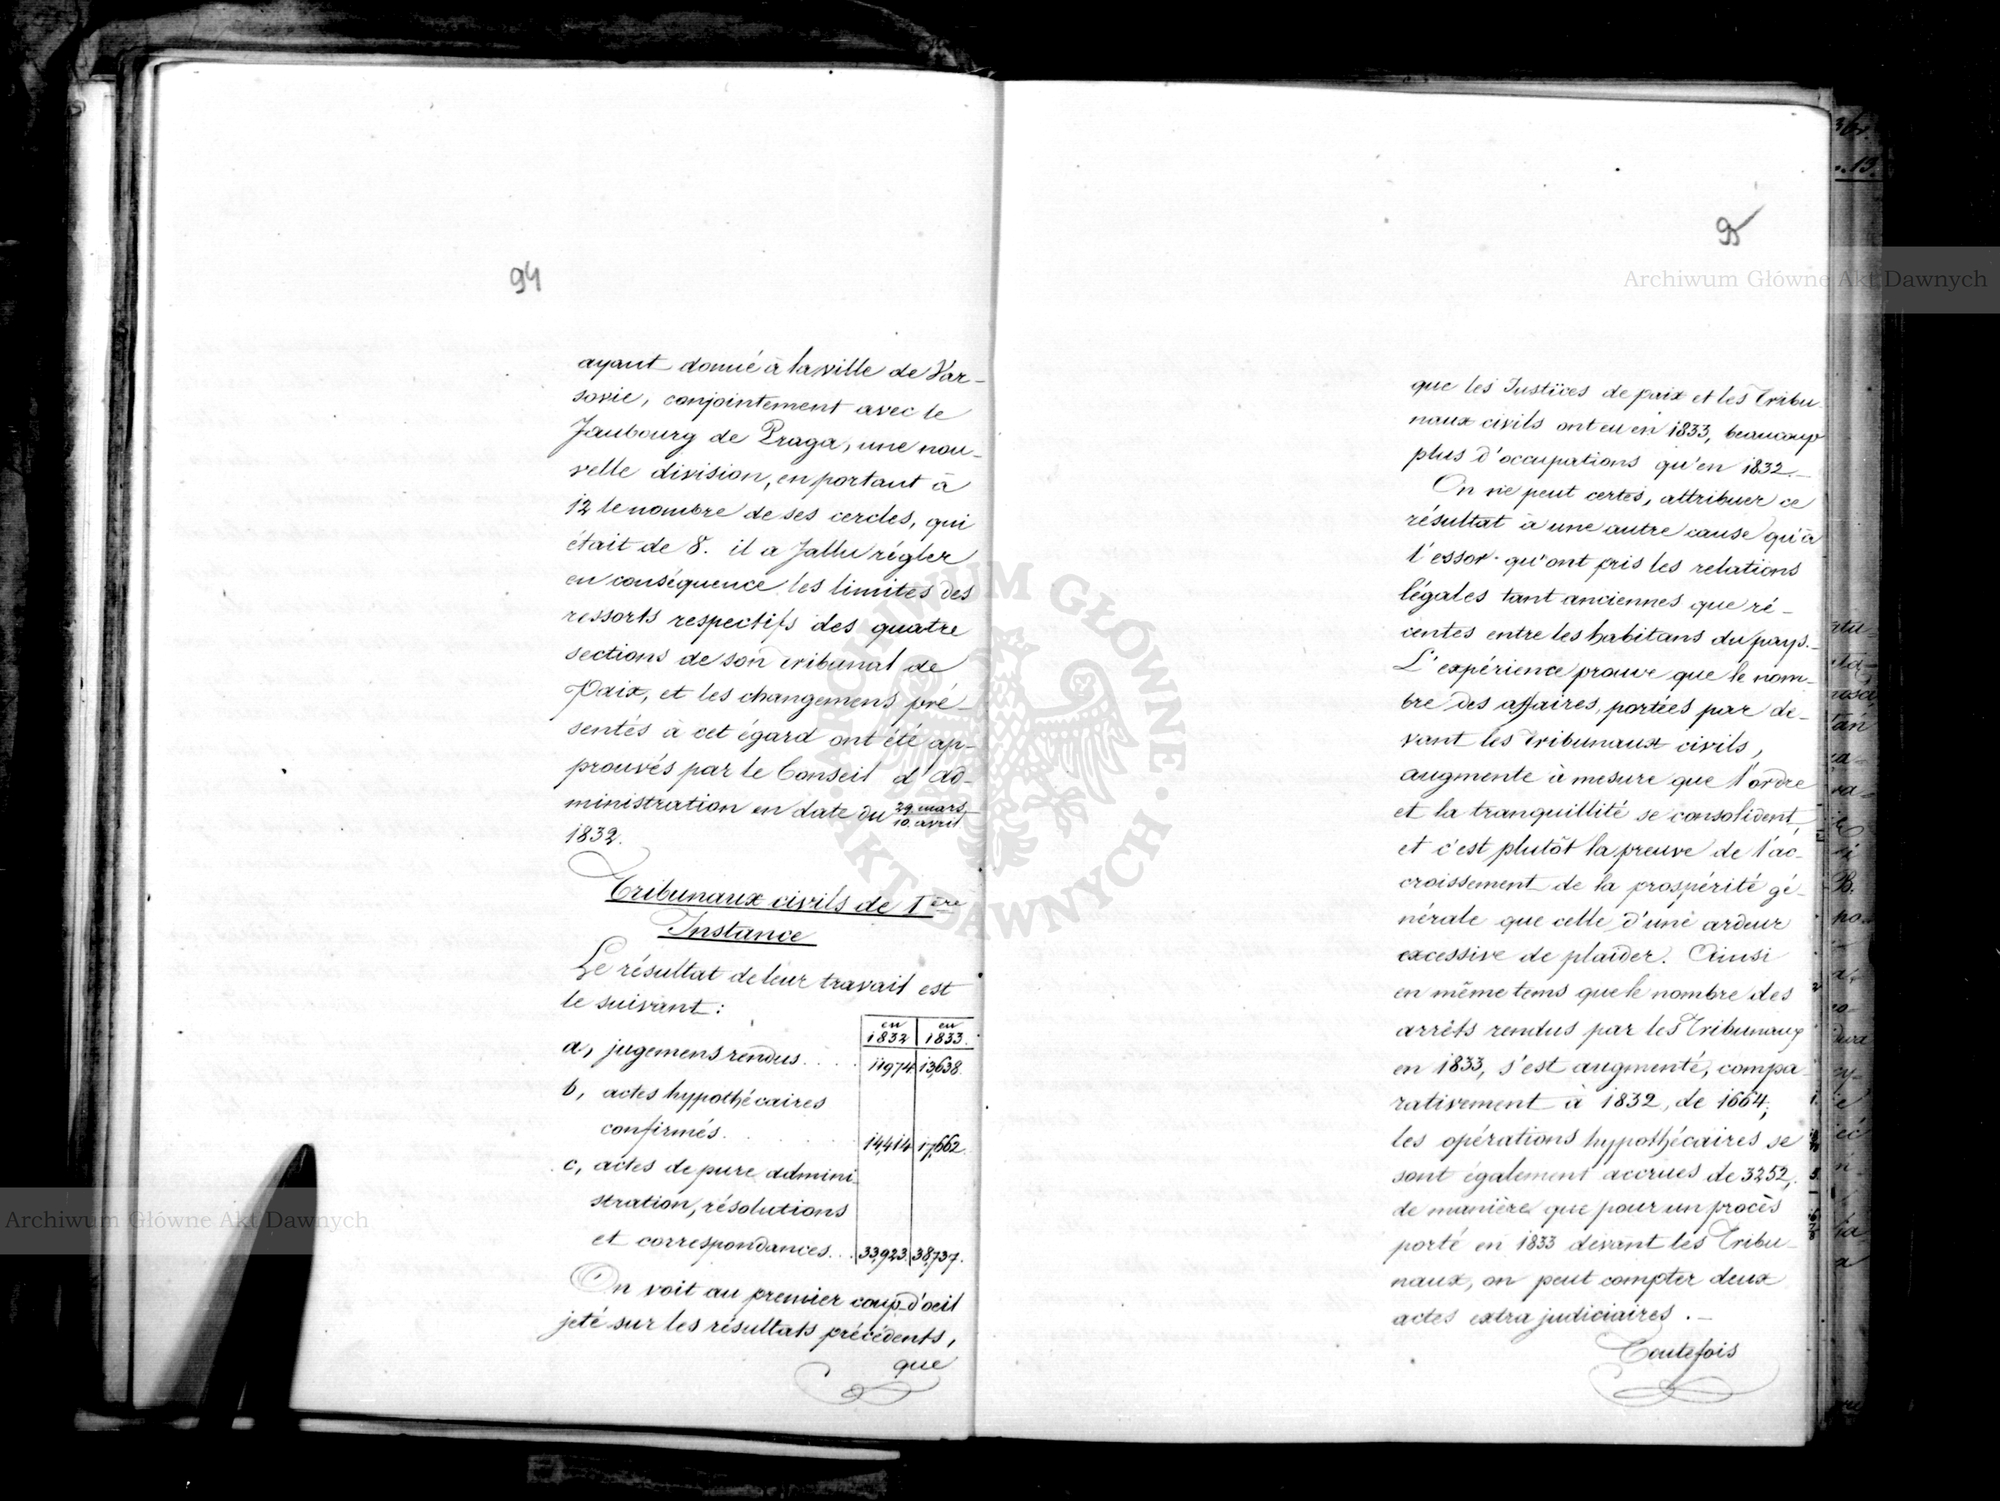 94
ayant donné à la ville de Var-
sovie, conjointement avec le
Faubourg de Praga, une nou-
velle division, en portant à
12 le nombre de ses cercles, qui
était de 8. il a fallu régler
en conséquence les limites des
ressorts respectifs des quatre
sections de son tribunal de
Paix, et les changemens pré-
sentés à cet égard ont été ap-
prouvés par le Conseil d'Ad-
ministration en date du 29. mars / 10. avril
1832.
Tribunaux civils de 1ère
Instance
Le résultat de leur travail est
le suivant:
en 1832 | en 1833.
a, jugemens rendus.... 11974 | 13,638.
b, actes hypothécaires
confirmés..... 14,414 | 17,662.
c, actes de pure admini-
stration, résolutions
et correspondances... 33,923. | 38,737.
On voit au premier coup d'oeil
jeté sur les résultats précédents,
que
95
que les Justices de paix et les Tribu-
naux civils ont eu en 1833, beaucoup
plus d'occupations qu'en 1832.-
On ne peut certes, attribuer ce
résultat à une autre cause qu'à
l'essor qu'ont pris les relations
légales tant anciennes que ré-
centes entre les habitans du pays.-
L'expérience prouve que le nom-
bre des affaires, portées par de-
vant les Tribunaux civils,
augmente à mesure que l'ordre
et la tranquillité se consolident,
et c'est plutôt la preuve de l'ac-
croissement de la prospérité gé-
nérale que celle d'une ardeur
excessive de plaider. Ainsi
en même tems que le nombre des
arrêts rendus par les Tribunaux
en 1833, s'est augmenté, compa-
rativement à 1832, de 1664;
les opérations hypothécaires se
sont également accrues de 3252,
de manière que pour un procès
porté en 1833 devant les Tribu-
naux, on peut compter deux
actes extrajudiciaires.-
Toutefois
Archiwum Główne Akt Dawnych
Archiwum Główne Akt Dawnych
ARCHIWUM GŁÓWNE · AKT DAWNYCH ·